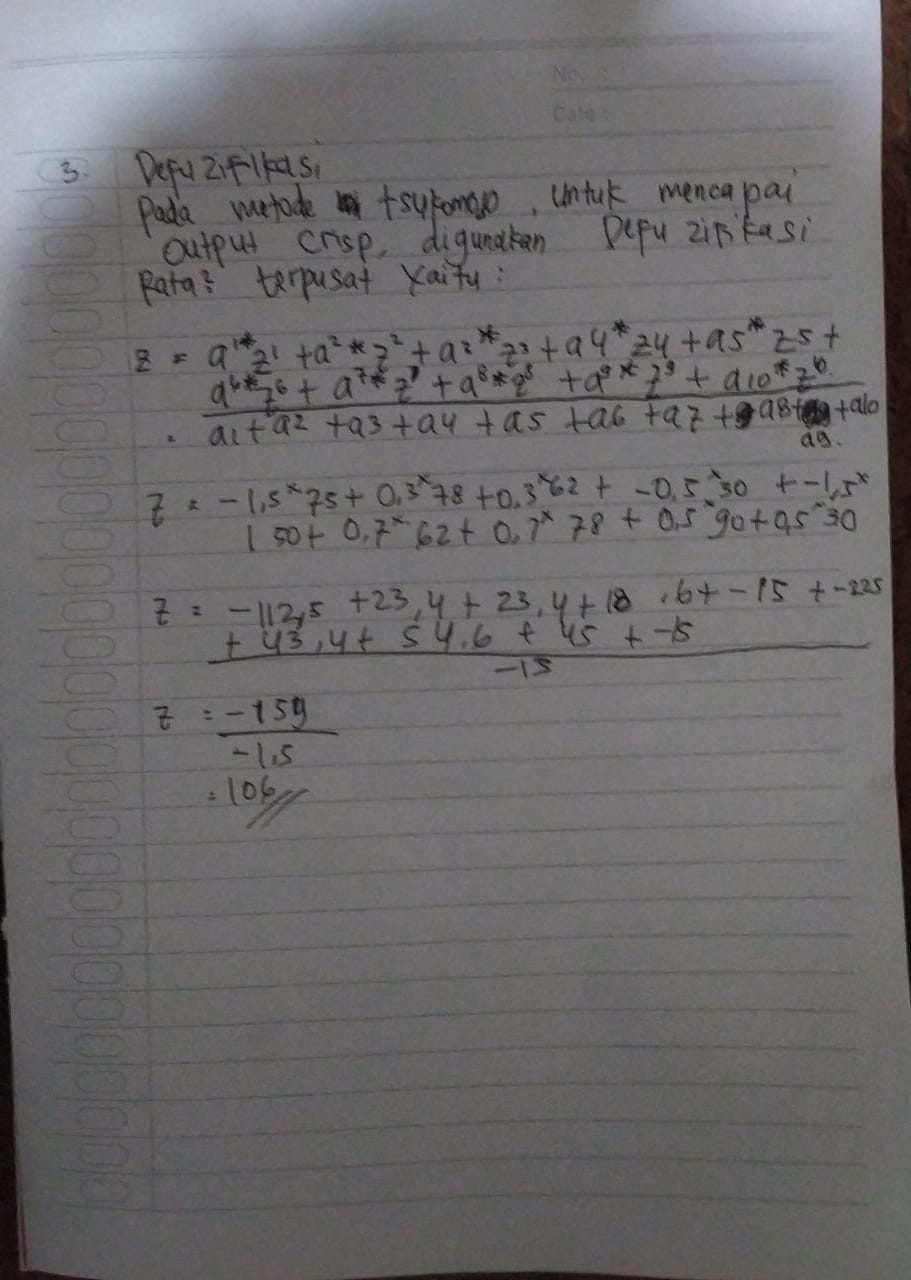 No.
Date :
3. Defuzifikasi
Pada metode tsukamoo, untuk mencapai
output crisp, digunakan Defuzifikasi
Rata² terpusat yaitu :
z = a1*z1 + a2*z2 + a3*z3 + a4*z4 + a5*z5 +
a6*z6 + a7*z7 + a8*z8 + a9*z9 + a10*z10
a1+a2+a3+a4+a5+a6+a7+a8+ +a10
a9.
z = -1,5*75 + 0.3*78 + 0.3*62 + -0,5*30 + -1,5*
150 + 0,7*62 + 0,7*78 + 0,5*90 + 0,5*30
z = -112,5 + 23,4 + 23,4 + 18.6 + -15 + -225
+ 43,4 + 54.6 + 45 + -15
-15
z = -159
-1.5
= 106